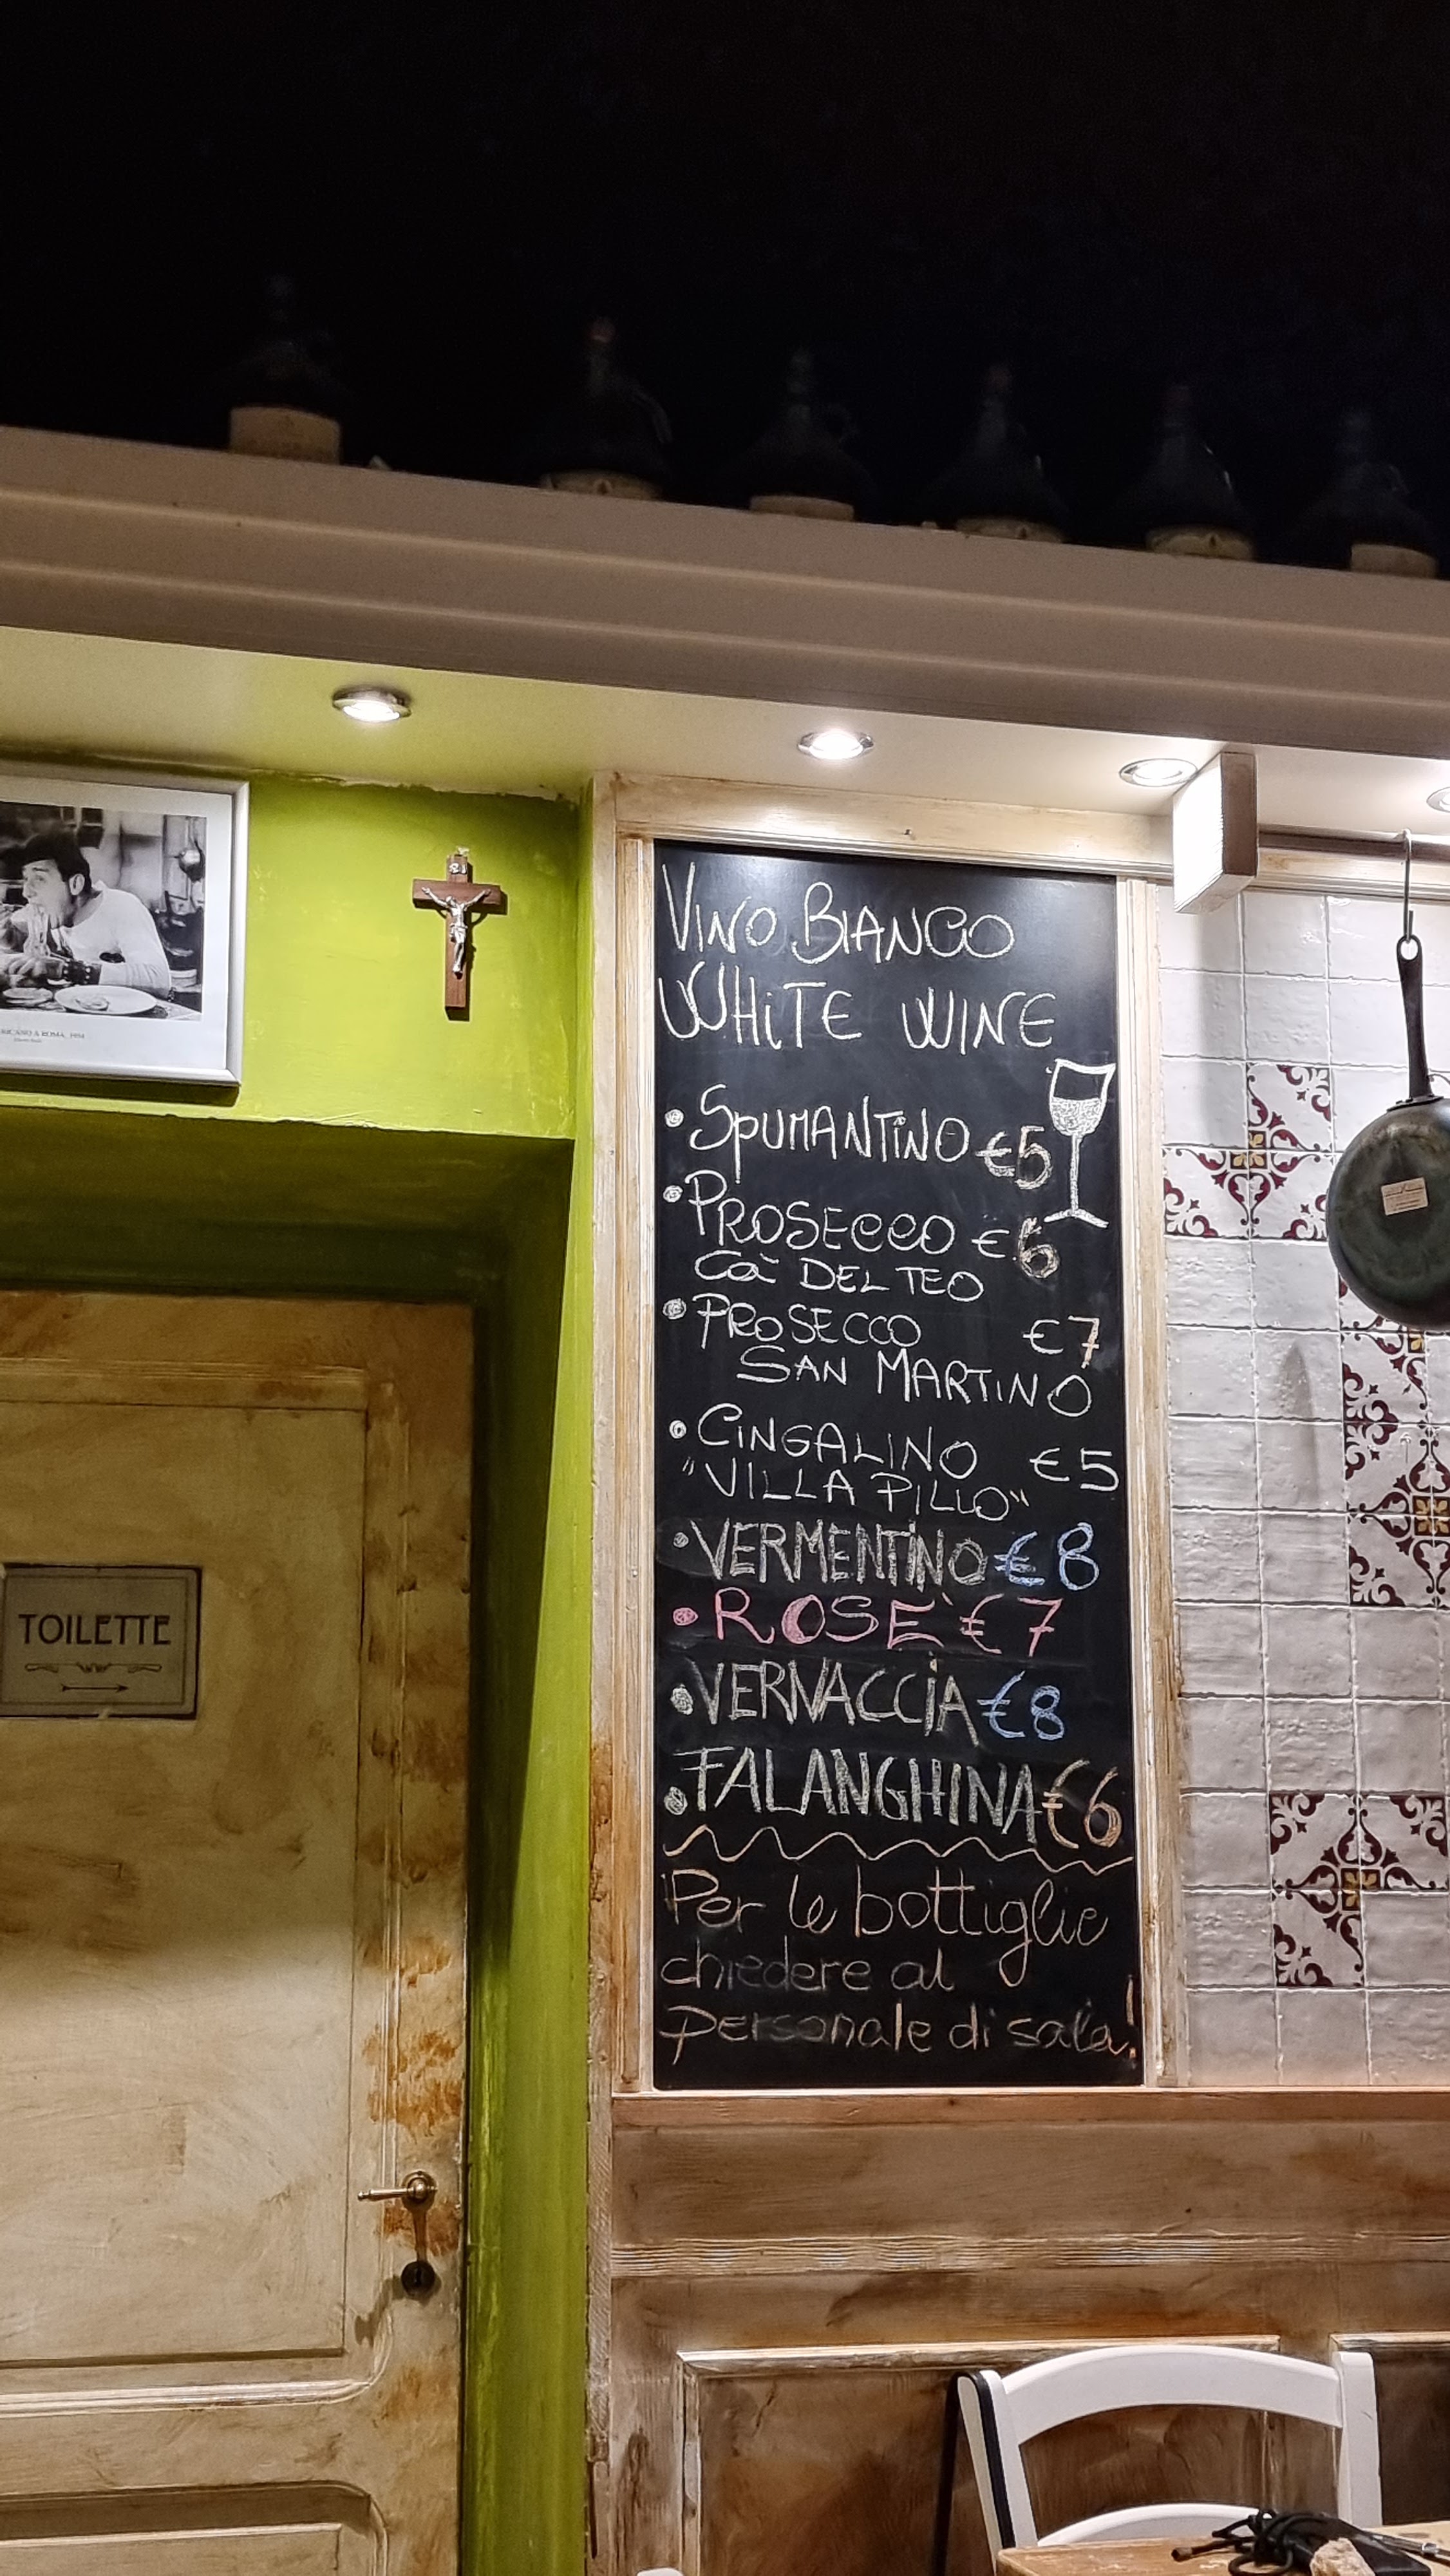 VINO BIANCO
WHITE WINE
• SPUMANTINO €5
• PROSECCO €6
Cà DEL TEO
• PROSECCO €7
SAN MARTINO
• CINGALINO €5
"VILLA PILLO"
• VERMENTINO €8
• ROSE' €7
• VERNACCIA €8
• FALANGHINA €6
Per le bottiglie
chiedere al
personale di sala!
TOILETTE
RICANO A ROMA, 1954